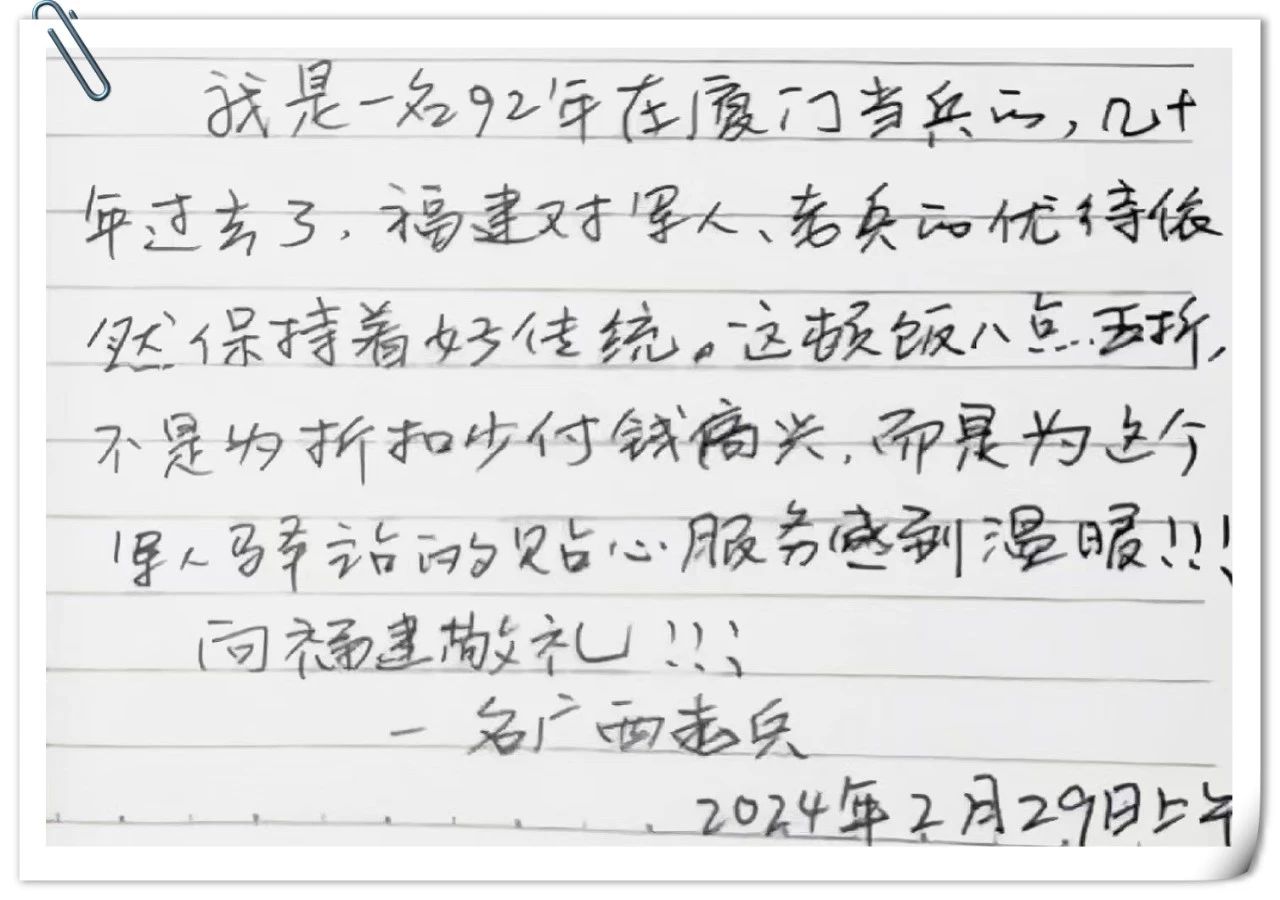 我是一名92年在厦门当兵的,几十
年过去了,福建对军人、老兵的优待依
然保持着好传统。这顿饭八点五折,
不是为折扣少付钱高兴,而是为这个
军人驿站的贴心服务感到温暖!!!
向福建敬礼!!!
一名广西老兵
2024年2月29日上午